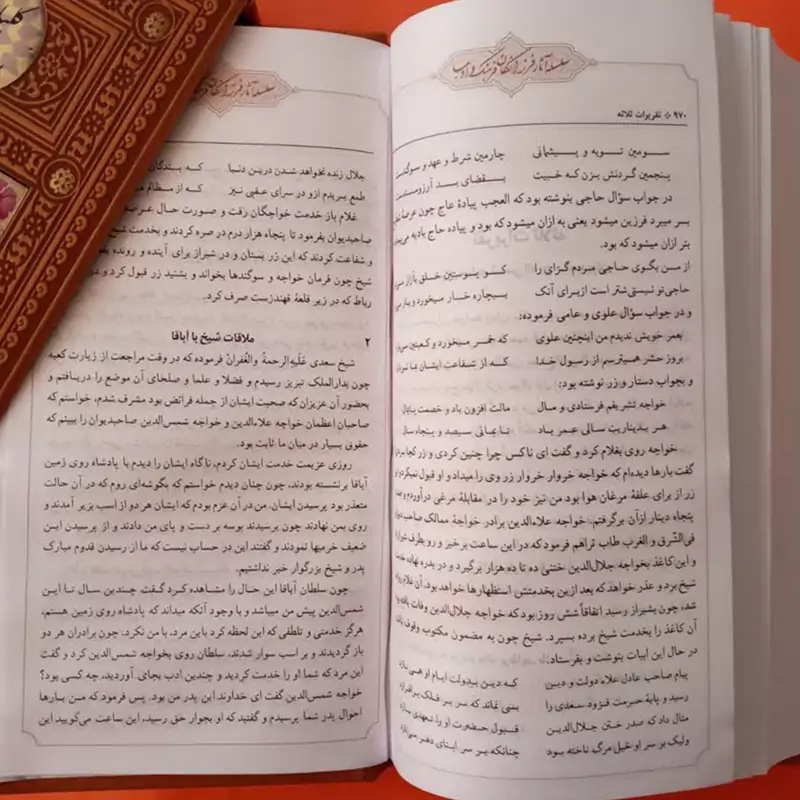 سلسله آثار فرزانگان فرهنگ و ادب
۹۷۰ * تقریرات ثلاثه
سومین توبه و پشیمانی چارمین شرط و عهد و سوگند
پنجمین گردنش بزن که خبیث بقضای بد آرزومند
در جواب سؤال حاجی بنوشته بود که العجب پیادهٔ عاج چون عرصهٔ
بسر میبرد فرزین میشود یعنی به ازان میشود که بود و پیاده حاج بادیه
بتر ازان میشود که بود.
از من بگوی حاجی مردم گزای را کو پوستین خلق بازار
حاجی تو نیستی شتر است ازبرای آنک بیچاره خار میخورد و بار
و در جواب سؤال علوی و عامی فرموده:
بعمر خویش ندیدم من اینچنین علوی که خمر میخورد و کعبتین
بروز حشر همیترسم از رسول خدا که از شفاعت ایشان بما
و بجواب دستار و زر نوشته بود:
خواجه تشریفم فرستادی و مال مالت افزون باد و خصمت پایمال
هر بدیناریت سالی عمر باد تا بمانی سیصد و پنجاه سال
خواجه روی بغلام کرد و گفت ای ناکس چرا چنین کردی و زر کجا
گفت بارها دیده‌ام که خواجه خروار خروار زر وی را میداد و او قبول نمیکرد
زر از برای علفهٔ مرغان هوا بود من نیز خود را در مقابلهٔ مرغی درآوردم و
پنجاه دینار ازآن برگرفتم. خواجه علاءالدین برادر خواجهٔ ممالک صاحب
فی‌الشرق و الغرب طاب ثراهم فرمود که در این ساعت برخیز و رو بطرف
و این کاغذ بخواجه جلال‌الدین ختنی ده تا ده هزار برگیرد و در بدره نهاده
شیخ برد و عذر خواهد که بعد ازین بخدمتش استظهارها خواهد بود. آن غلام
شد، چون بشیراز رسید اتفاقاً شش روز بود که خواجه جلال‌الدین وفات یافته
آن کاغذ را بخدمت شیخ برده بسپرد. شیخ چون به مضمون مکتوب وقوف
در حال این ابیات بنوشت و بفرستاد.
پیام صاحب عادل علاء دولت و دین که دین بدولت ایام او همی نازد
رسید و پایهٔ حرمت فزود سعدی را بسی نماند که سر بر فلک برافرازد
مثال داد که صدر ختن جلال‌الدین قبول حضرت او را تعهدی سازد
ولیک بر سر او خیل مرگ تاخته بود چنانکه بر سر ابنای دهر می‌تازد
سلسله آثار فرزانگان فرهنگ و ادب
جلال زنده نخواهد شدن درین دنیا که بندگان
طمع بریدم ازو در سرای عقبی نیز که از مظالم
غلام باز خدمت خواجگان رفت و صورت حال عرضه
صاحبدیوان بفرمود تا پنجاه هزار درم در صره کردند و بخدمت شیخ
و شفاعت کردند که این زر بستان و در شیراز برای آینده و رونده
شیخ چون فرمان خواجه و سوگندها بخواند و بشنید زر قبول کرد و در
رباط که در زیر قلعهٔ قهندزست صرف کرد.
۲ ملاقات شیخ با آباقا
شیخ سعدی عَلَیهِ الرحمةُ والغُفران فرموده که در وقت مراجعت از زیارت کعبه
چون بدارالملک تبریز رسیدم و فضلا و علما و صلحای آن موضع را دریافتم و
بحضور آن عزیزان که صحبت ایشان از جمله فرائض بود مشرف شدم، خواستم که
صاحبان اعظمان خواجه علاءالدین و خواجه شمس‌الدین صاحبدیوان را ببینم که
حقوق بسیار در میان ما ثابت بود.
روزی عزیمت خدمت ایشان کردم، ناگاه ایشان را دیدم با پادشاه روی زمین
آباقا برنشسته بودند، چون چنان دیدم خواستم که بگوشه‌ای روم که در آن حالت
متعذر بود پرسیدن ایشان. من در آن عزم بودم که ایشان هر دو از اسب بزیر آمدند و
روی بمن نهادند چون برسیدند بوسه بر دست و پای من دادند و از پرسیدن این
ضعیف خرمیها نمودند و گفتند این در حساب نیست که ما از رسیدن قدوم مبارک
پدر و شیخ بزرگوار خبر نداشتیم.
چون سلطان آباقا این حال را مشاهده کرد گفت چندین سال تا این
شمس‌الدین پیش من میباشد و با وجود آنکه میداند که پادشاه روی زمین هستم،
هرگز خدمتی و تلطفی که این لحظه کرد باین مرد، با من نکرد. چون برادران هر دو
باز گردیدند و بر اسب سوار شدند، سلطان روی بخواجه شمس‌الدین کرد و گفت
این مرد که شما او را خدمت کردید و چندین ادب بجای آوردید، چه کسی بود؟
خواجه شمس‌الدین گفت ای خداوند این پدر من بود. پس فرمود که من بارها
احوال پدر شما پرسیدم و گفتید که او بجوار حق رسید، این ساعت می‌گویید این